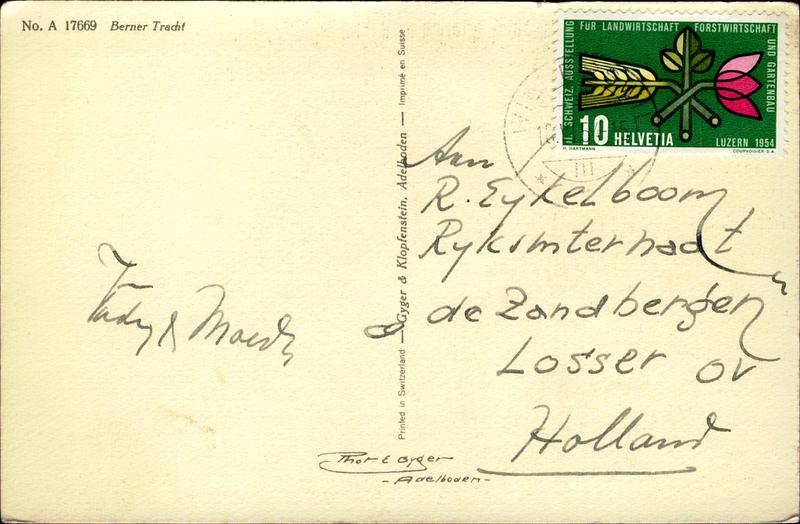 No. A 17669 Berner Tracht
II. SCHWEIZ. AUSSTELLUNG
FÜR LANDWIRTSCHAFT FORSTWIRTSCHAFT
UND GARTENBAU
10 HELVETIA
LUZERN 1954
H. HARTMANN
COURVOISIER S.A.
III
Printed in Switzerland — Gyger & Klopfenstein, Adelboden — Imprimé en Suisse
Aan
R. Eykelboom
Ryksinternaat
de Zandbergen
Losser OV
Holland
&
Phot E Gyger
- Adelboden -